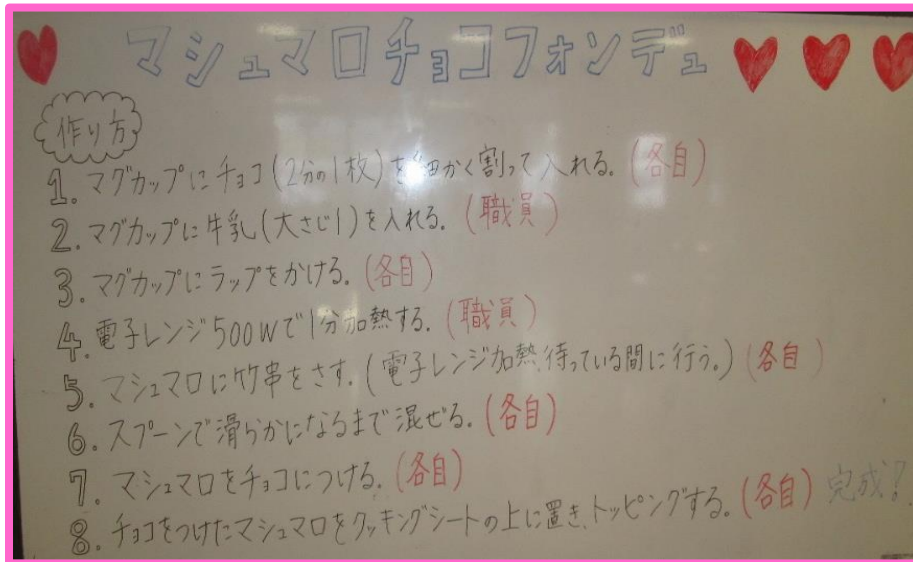 マシュマロチョコフォンデュ
作り方
1. マグカップにチョコ(2分の1枚)を細かく割って入れる。(各自)
2. マグカップに牛乳(大さじ1)を入れる。(職員)
3. マグカップにラップをかける。(各自)
4. 電子レンジ500Wで1分加熱する。(職員)
5. マシュマロに竹串をさす。(電子レンジ加熱、待っている間に行う。)(各自)
6. スプーンで滑らかになるまで混ぜる。(各自)
7. マシュマロをチョコにつける。(各自)
8. チョコをつけたマシュマロをクッキングシートの上に置き、トッピングする。(各自) 完成!